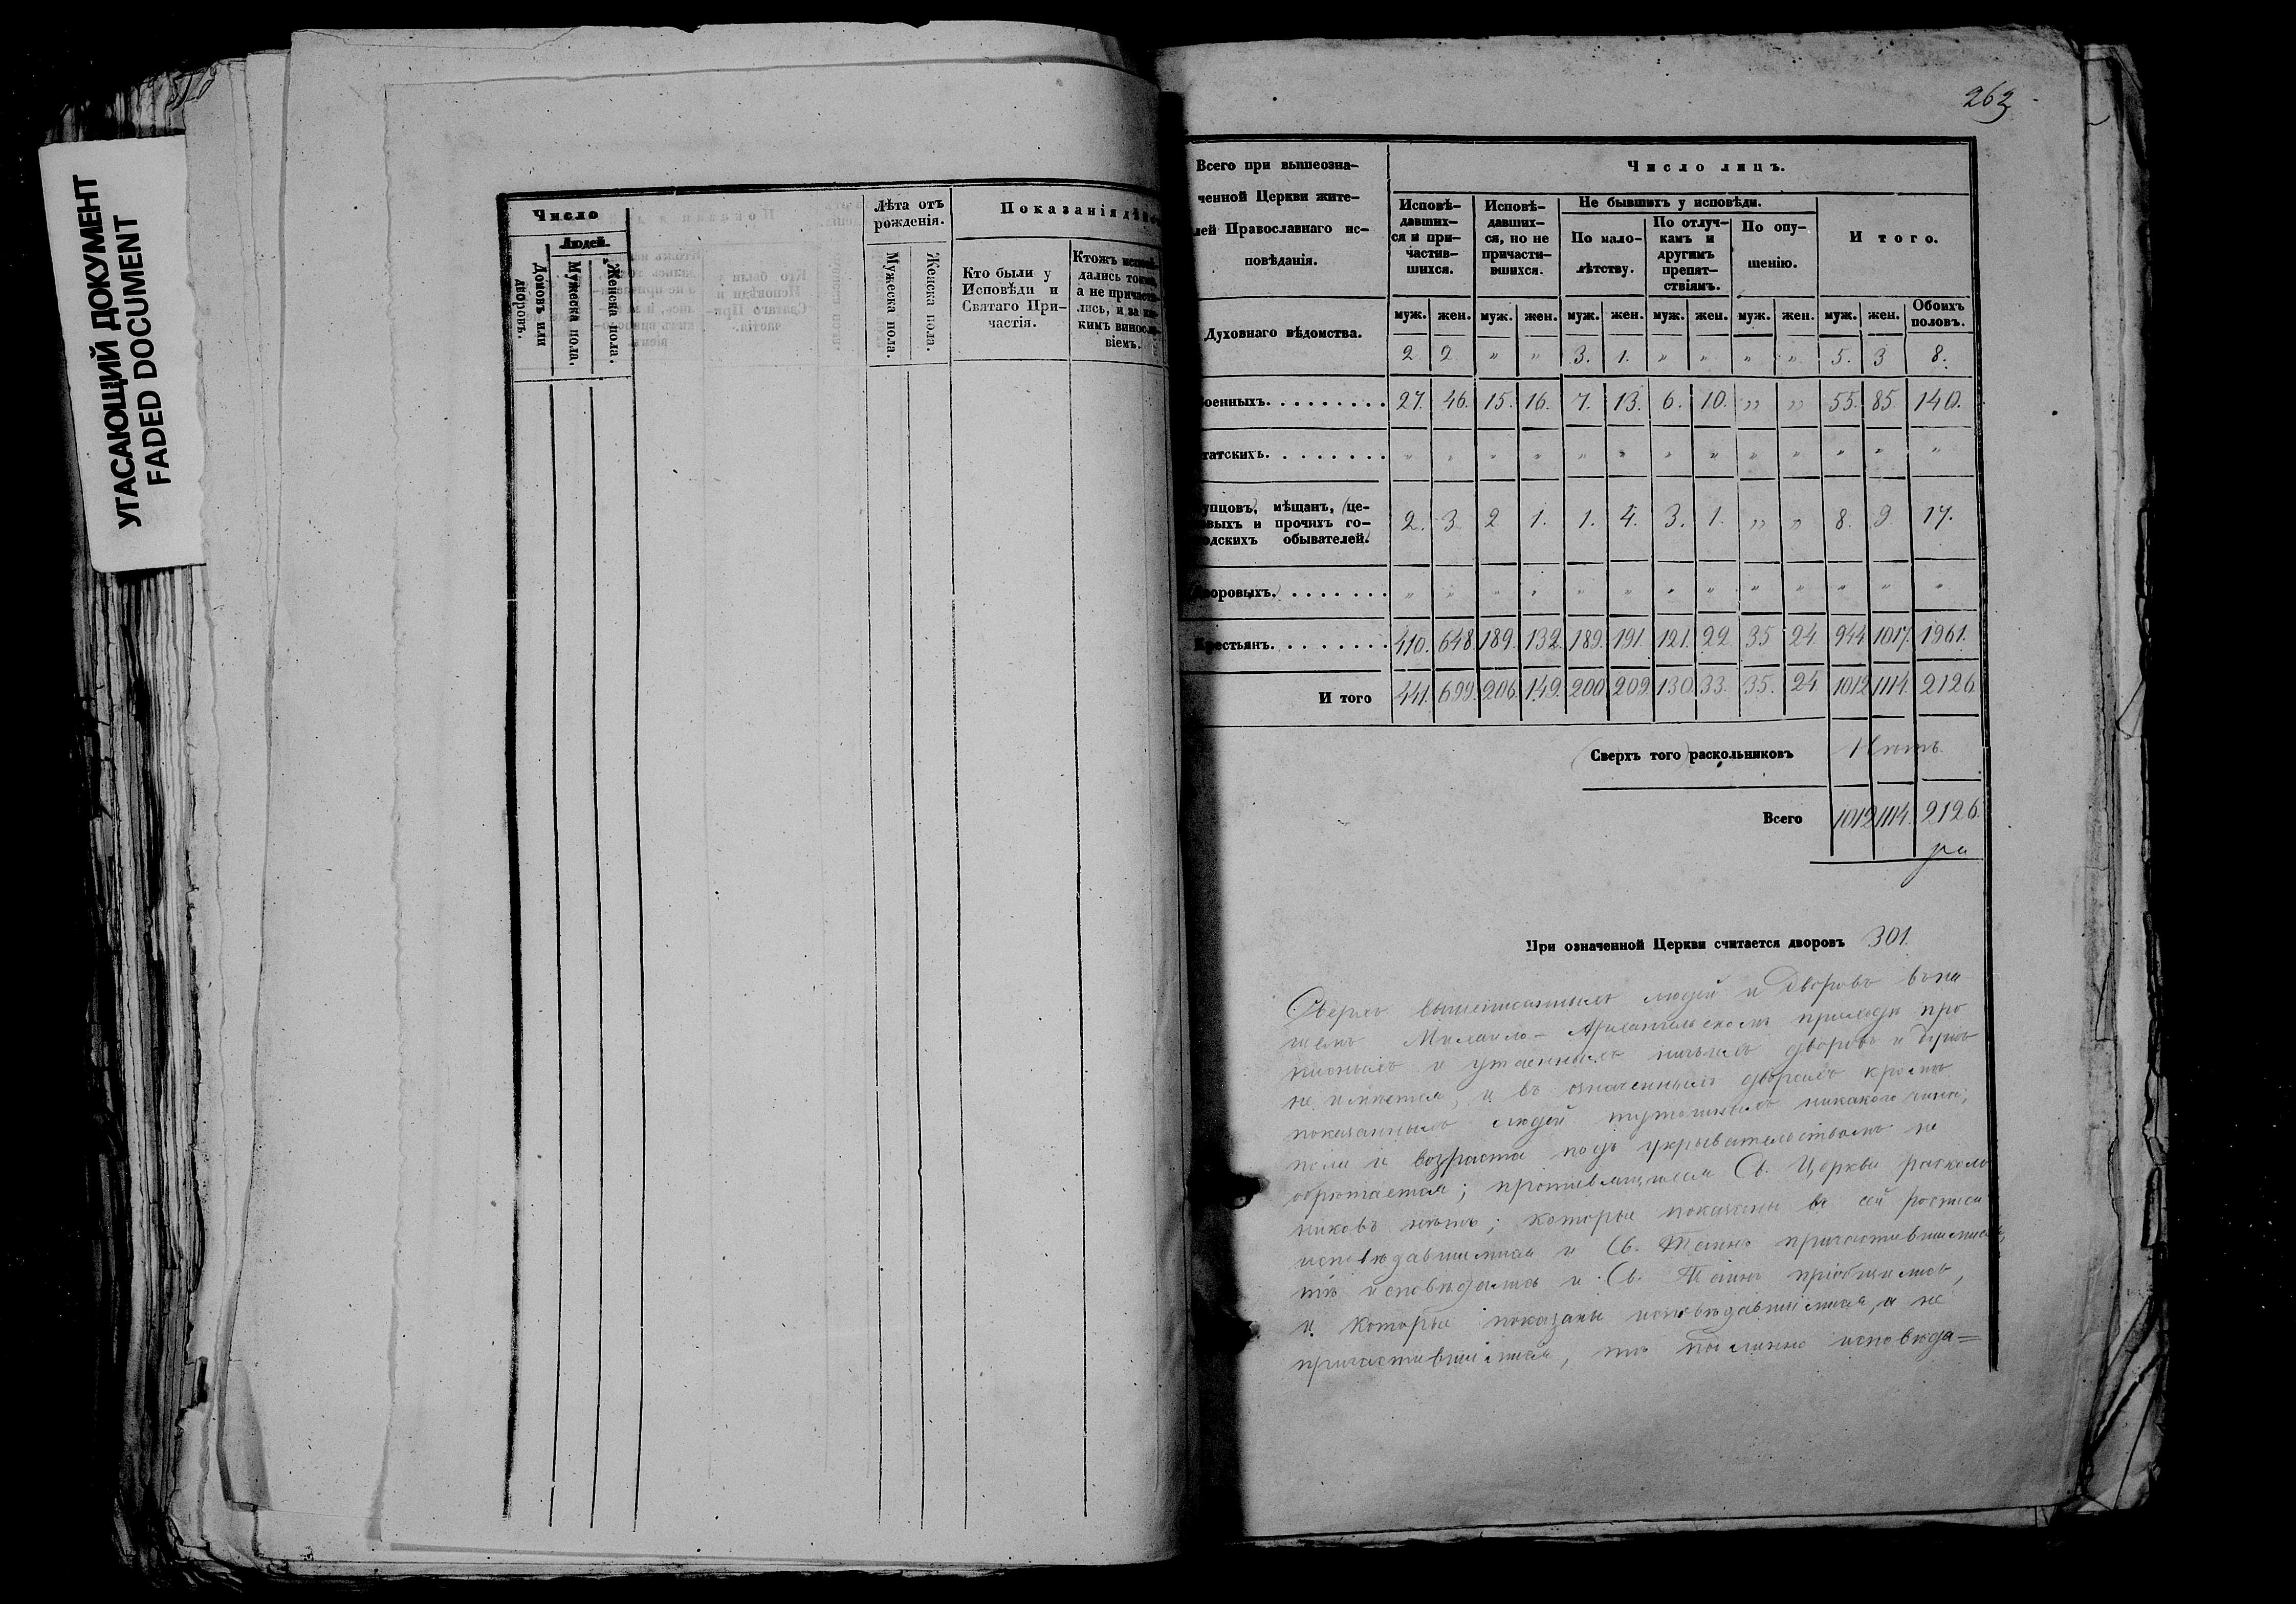 УГАСАЮЩИЙ ДОКУМЕНТ
FADED DOCUMENT
Число
Людей.
Домовъ или дворовъ.
Мужеска пола.
Женска пола.
Лѣта отъ
рожденія.
Мужеска пола.
Женска пола.
Показанія
Кто были у
Исповѣди и
Святаго При-
частія.
Ктожъ
дались
а не
лись, и за
кимъ
віемъ.
263
Всего при вышеозна-
ченной Церкви жите-
лей Православнаго ис-
повѣданія.
Число лицъ.
Исповѣ-
давших-
ся и при-
частив-
шихся.
Исповѣ-
давших-
ся, но не
причасти-
вшихся.
Не бывшихъ у исповѣди.
По мало-
лѣтству.
По отлуч-
камъ и
другимъ
препят-
ствіямъ.
По опу-
щенію.
И того.
муж. жен. муж. жен. муж. жен. муж. жен. муж. жен. муж. жен. Обоихъ
половъ.
Духовнаго вѣдомства. 2 2 „ „ 3. 1. „ „ „ „ 5. 3 8.
оенныхъ. 27. 46. 15. 16. 7. 13. 6. 10. „ „ 55. 85. 140.
татскихъ. „ „ „ „ „ „ „ „ „ „ „ „ „
упцовъ, мѣщанъ, (це-
овыхъ и прочихъ го-
одскихъ обывателей. 2. 3 2 1. 1. 4. 3. 1. „ „ 8. 9. 17.
воровыхъ. „ „ „ „ „ „ „ „ „ „ „ „ „
Крестьянъ. 410. 648. 189. 132. 189. 191. 121. 22. 35 24 944 1017. 1961.
И того 441. 699. 206. 149. 200. 209. 130. 33. 35. 24 1012 1114. 2126
(Сверхъ того) раскольниковъ Нѣтъ.
Всего 1012 1114. 2126.
При означенной Церкви считается дворовъ 301.
Сверхъ вышеписанныхъ людей и дворовъ въ на
шемъ Михаило-Архангельскомъ приходѣ про
писныхъ и утаенныхъ ничьихъ дворовъ и душъ
не имѣется, и въ означенныхъ дворахъ кромѣ
показанныхъ людей никакого чина,
пола и возраста подъ укрывательствомъ не
обрѣтается; противящихся Св. Церкви расколь
никовъ нѣтъ; которые показаны въ сей росписи
исповѣдавшимися и Св. Таинъ причастившимися,
тѣ исповѣдались и Св. Таинъ пріобщились,
и которые показаны исповѣдавшимися, а не
причастившимися, тѣ исповѣда=